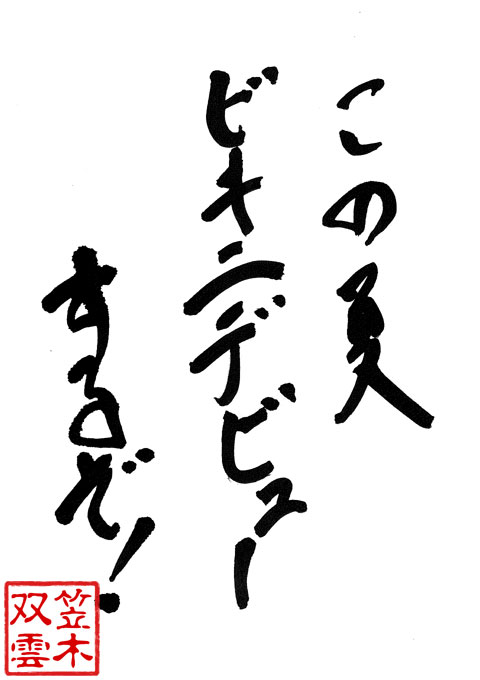 この夏
ビキニデビュー
するぞ!
笠木
双雲